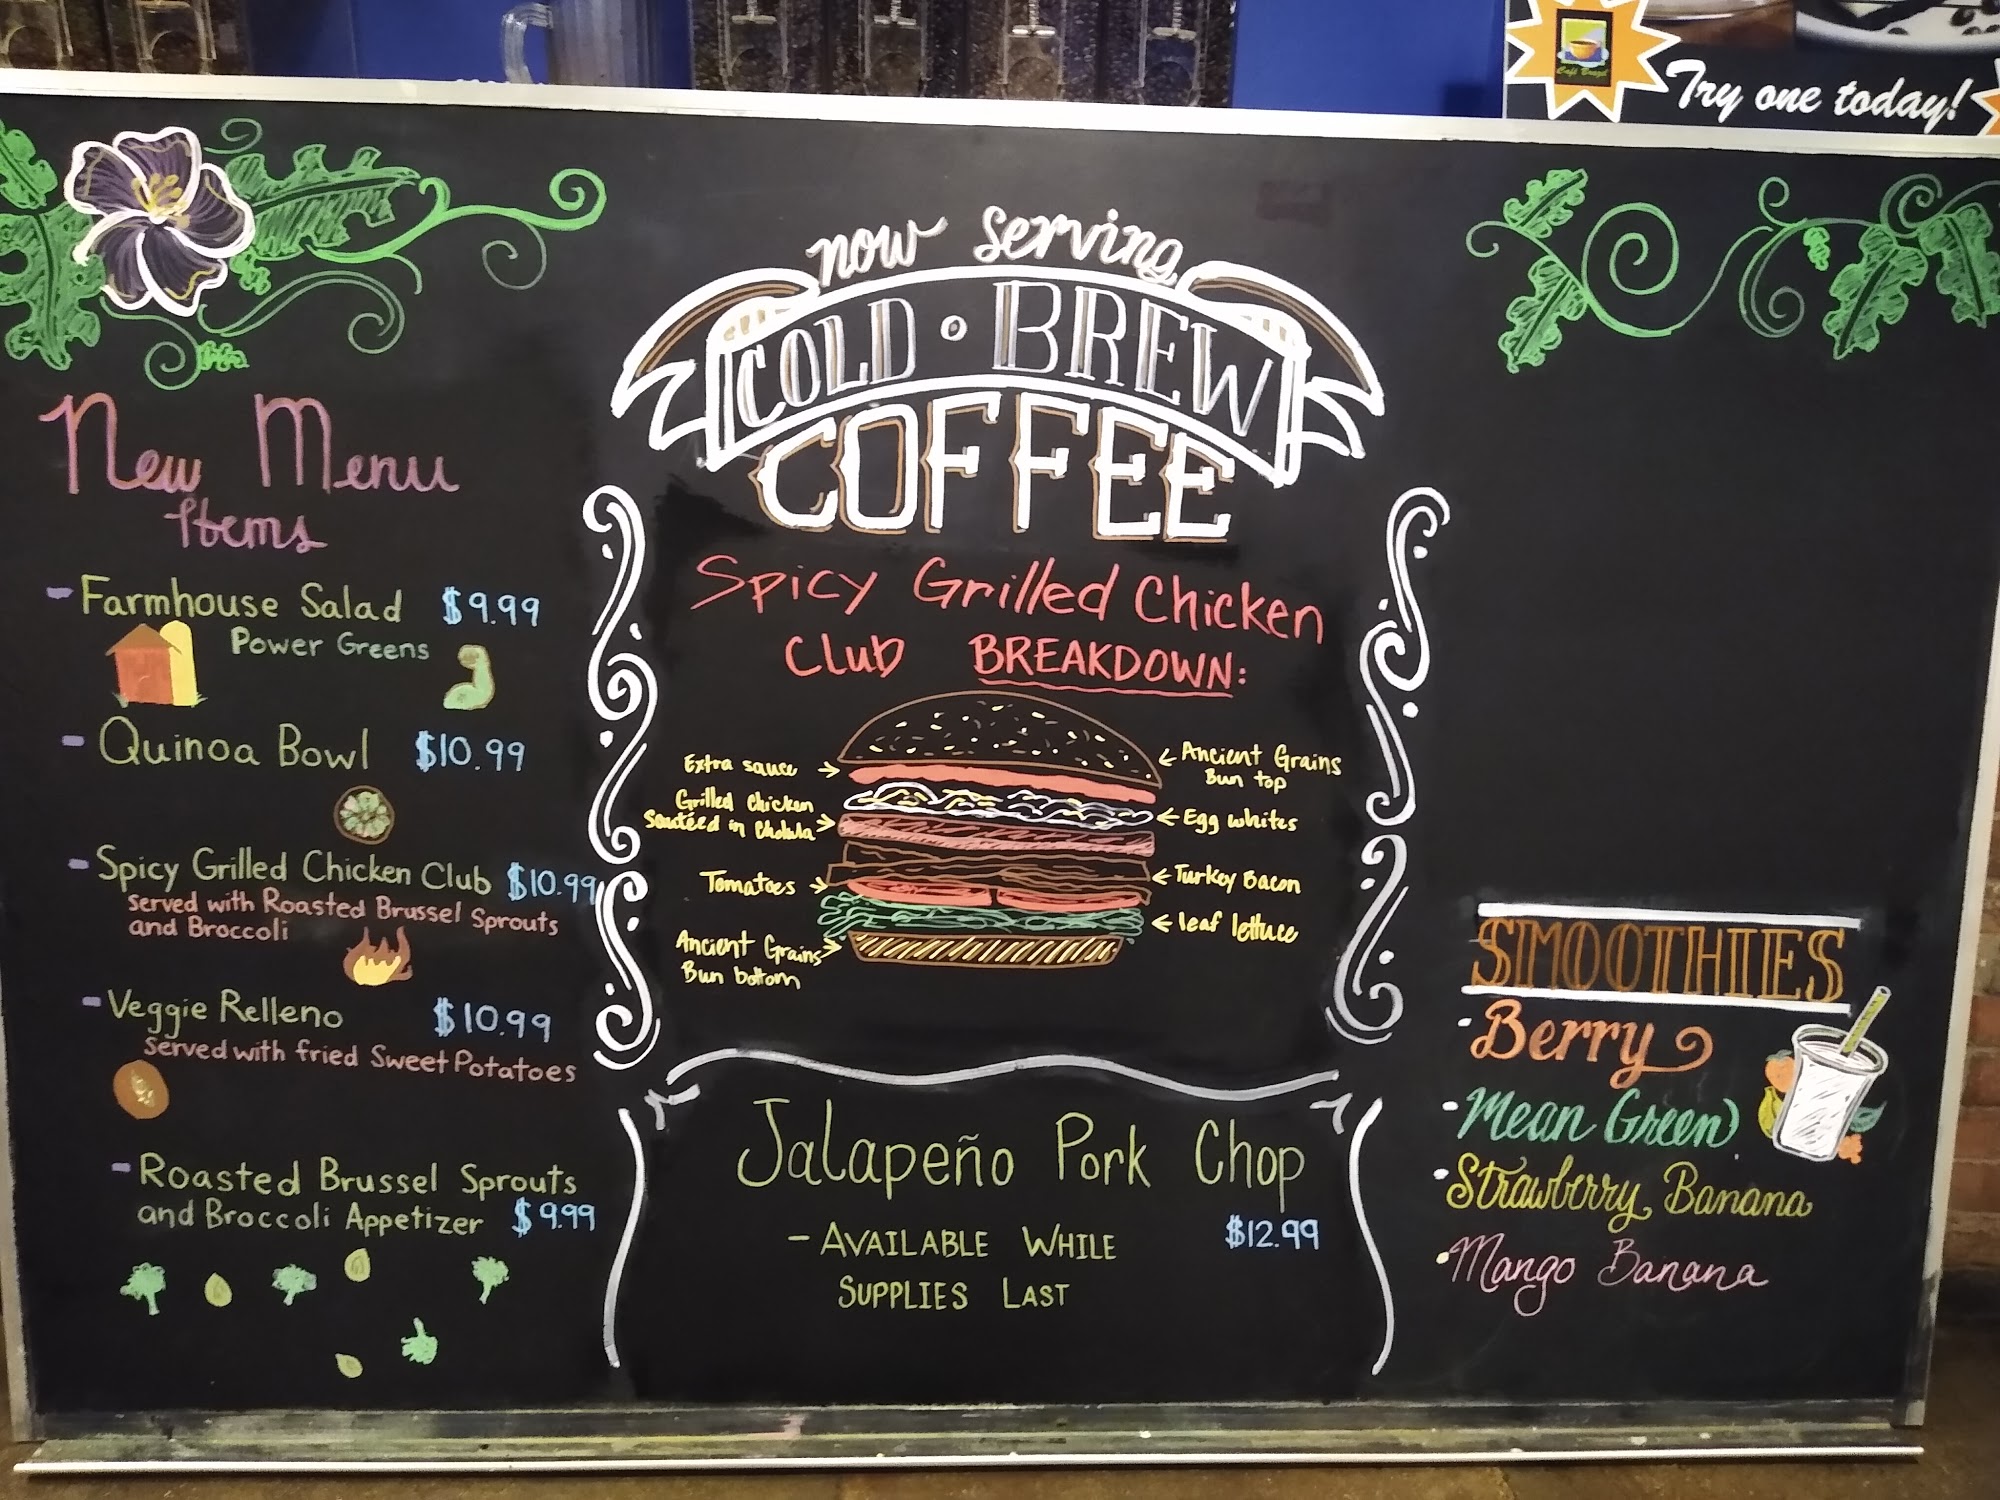 Café Brazil
Try one today!
now serving
COLD • BREW
COFFEE
New Menu
Items
- Farmhouse Salad $9.99
Power Greens
- Quinoa Bowl $10.99
- Spicy Grilled Chicken Club $10.99
served with Roasted Brussel Sprouts
and Broccoli
- Veggie Relleno $10.99
Served with fried Sweet Potatoes
- Roasted Brussel Sprouts
and Broccoli Appetizer $9.99
Spicy Grilled Chicken
Club BREAKDOWN:
Extra sauce →
Grilled Chicken
Sautéed in Cholula →
Tomatoes →
Ancient Grains →
Bun bottom
← Ancient Grains
Bun top
← Egg whites
← Turkey Bacon
← leaf lettuce
Jalapeño Pork Chop
- AVAILABLE WHILE $12.99
SUPPLIES LAST
SMOOTHIES
• Berry
• Mean Green
• Strawberry Banana
• Mango Banana